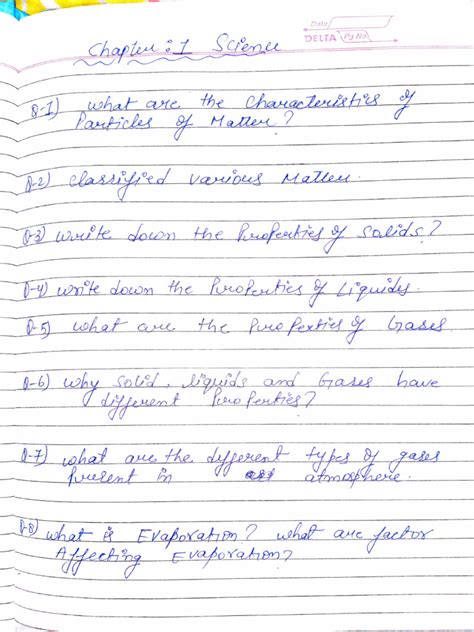 Date
DELTA Pg No.
Chapter : 1 Science
Q-1) what are the Characteristics of
Particles of Matter?
Q-2) classified various Matter.
Q-3) write down the Properties of Solids?
Q-4) write down the Properties of Liquids.
Q-5) what are the Properties of Gases
Q-6) why solid, liquids and Gases have
different Properties?
Q-7) what are the different types of gases
present in atmosphere.
Q-8) what is Evaporation? what are factor
Affecting Evaporation?